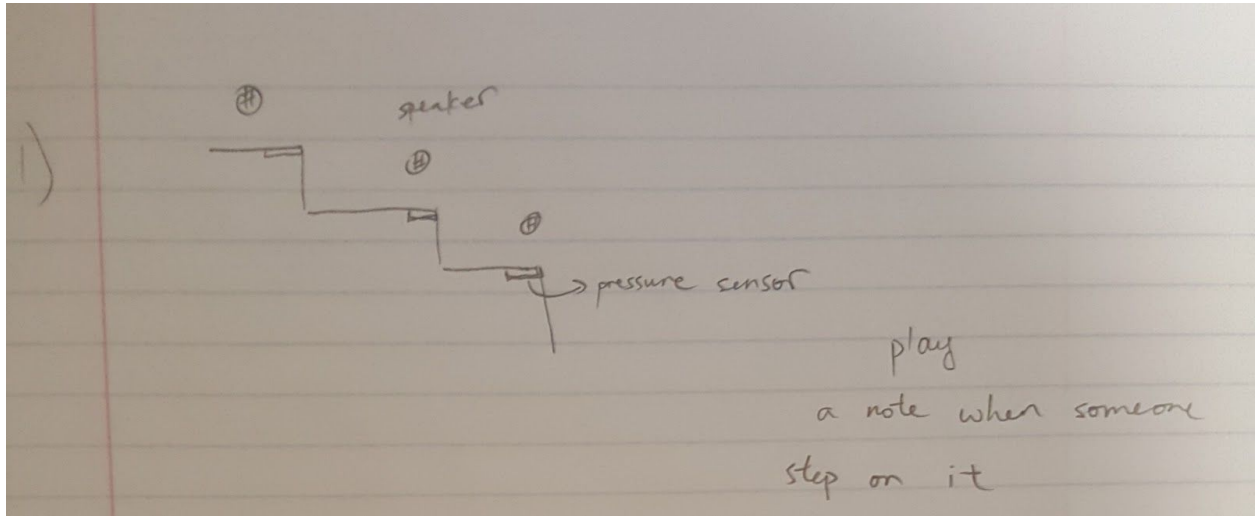 1)
speaker
pressure sensor
play
a note when someone
step on it